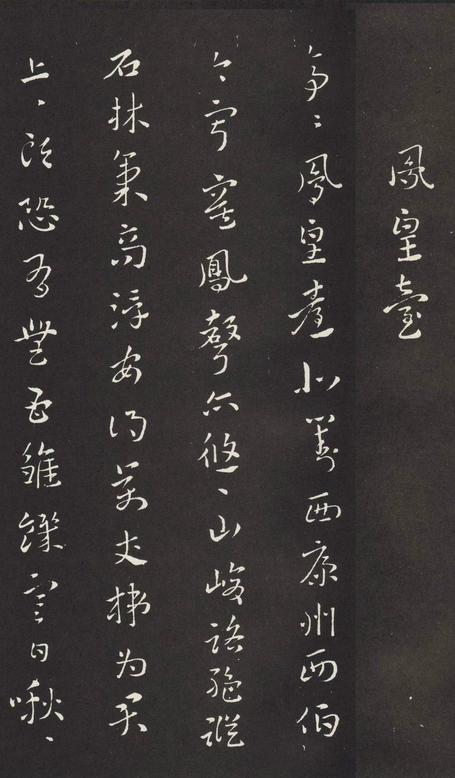 鳳皇臺
亭〻鳳皇臺北對西康州西伯
今寂寞鳳聲亦悠〻山峻路絕蹤
石林氣高浮安得萬丈梯為君
上〻頭恐有無母雛饑寒日啾〻